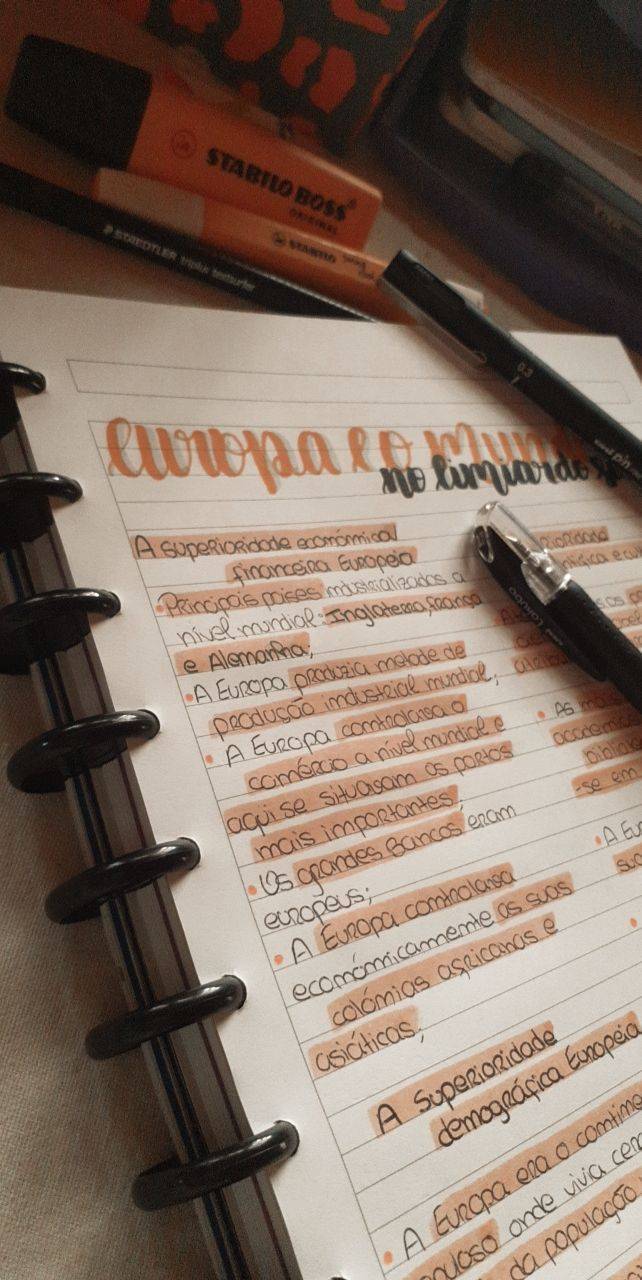 STABILO BOSS
ORIGINAL
STABILO
STAEDTLER triplus textsurfer
0.3
uni pin
europa e o mun
no limiar do
A superioridade económica
financeira Europeia
• Principais países industrializados a
nível mundial: Inglaterra, França
e Alemanha,
• A Europa produzia metade de
produção industrial mundial;
• A Europa controlava o
comércio a nível mundial e
aqui se situavam os portos
mais importantes;
• Os grandes Bancos eram
europeus;
• A Europa controlava
económicamente as suas
colónias africanas e
asiáticas;
A Superioridade
demográfica Europeia
• A Europa era o contine
uloso onde vivia cer
da população
rioridade
• As
academ
-se em
• A Eu